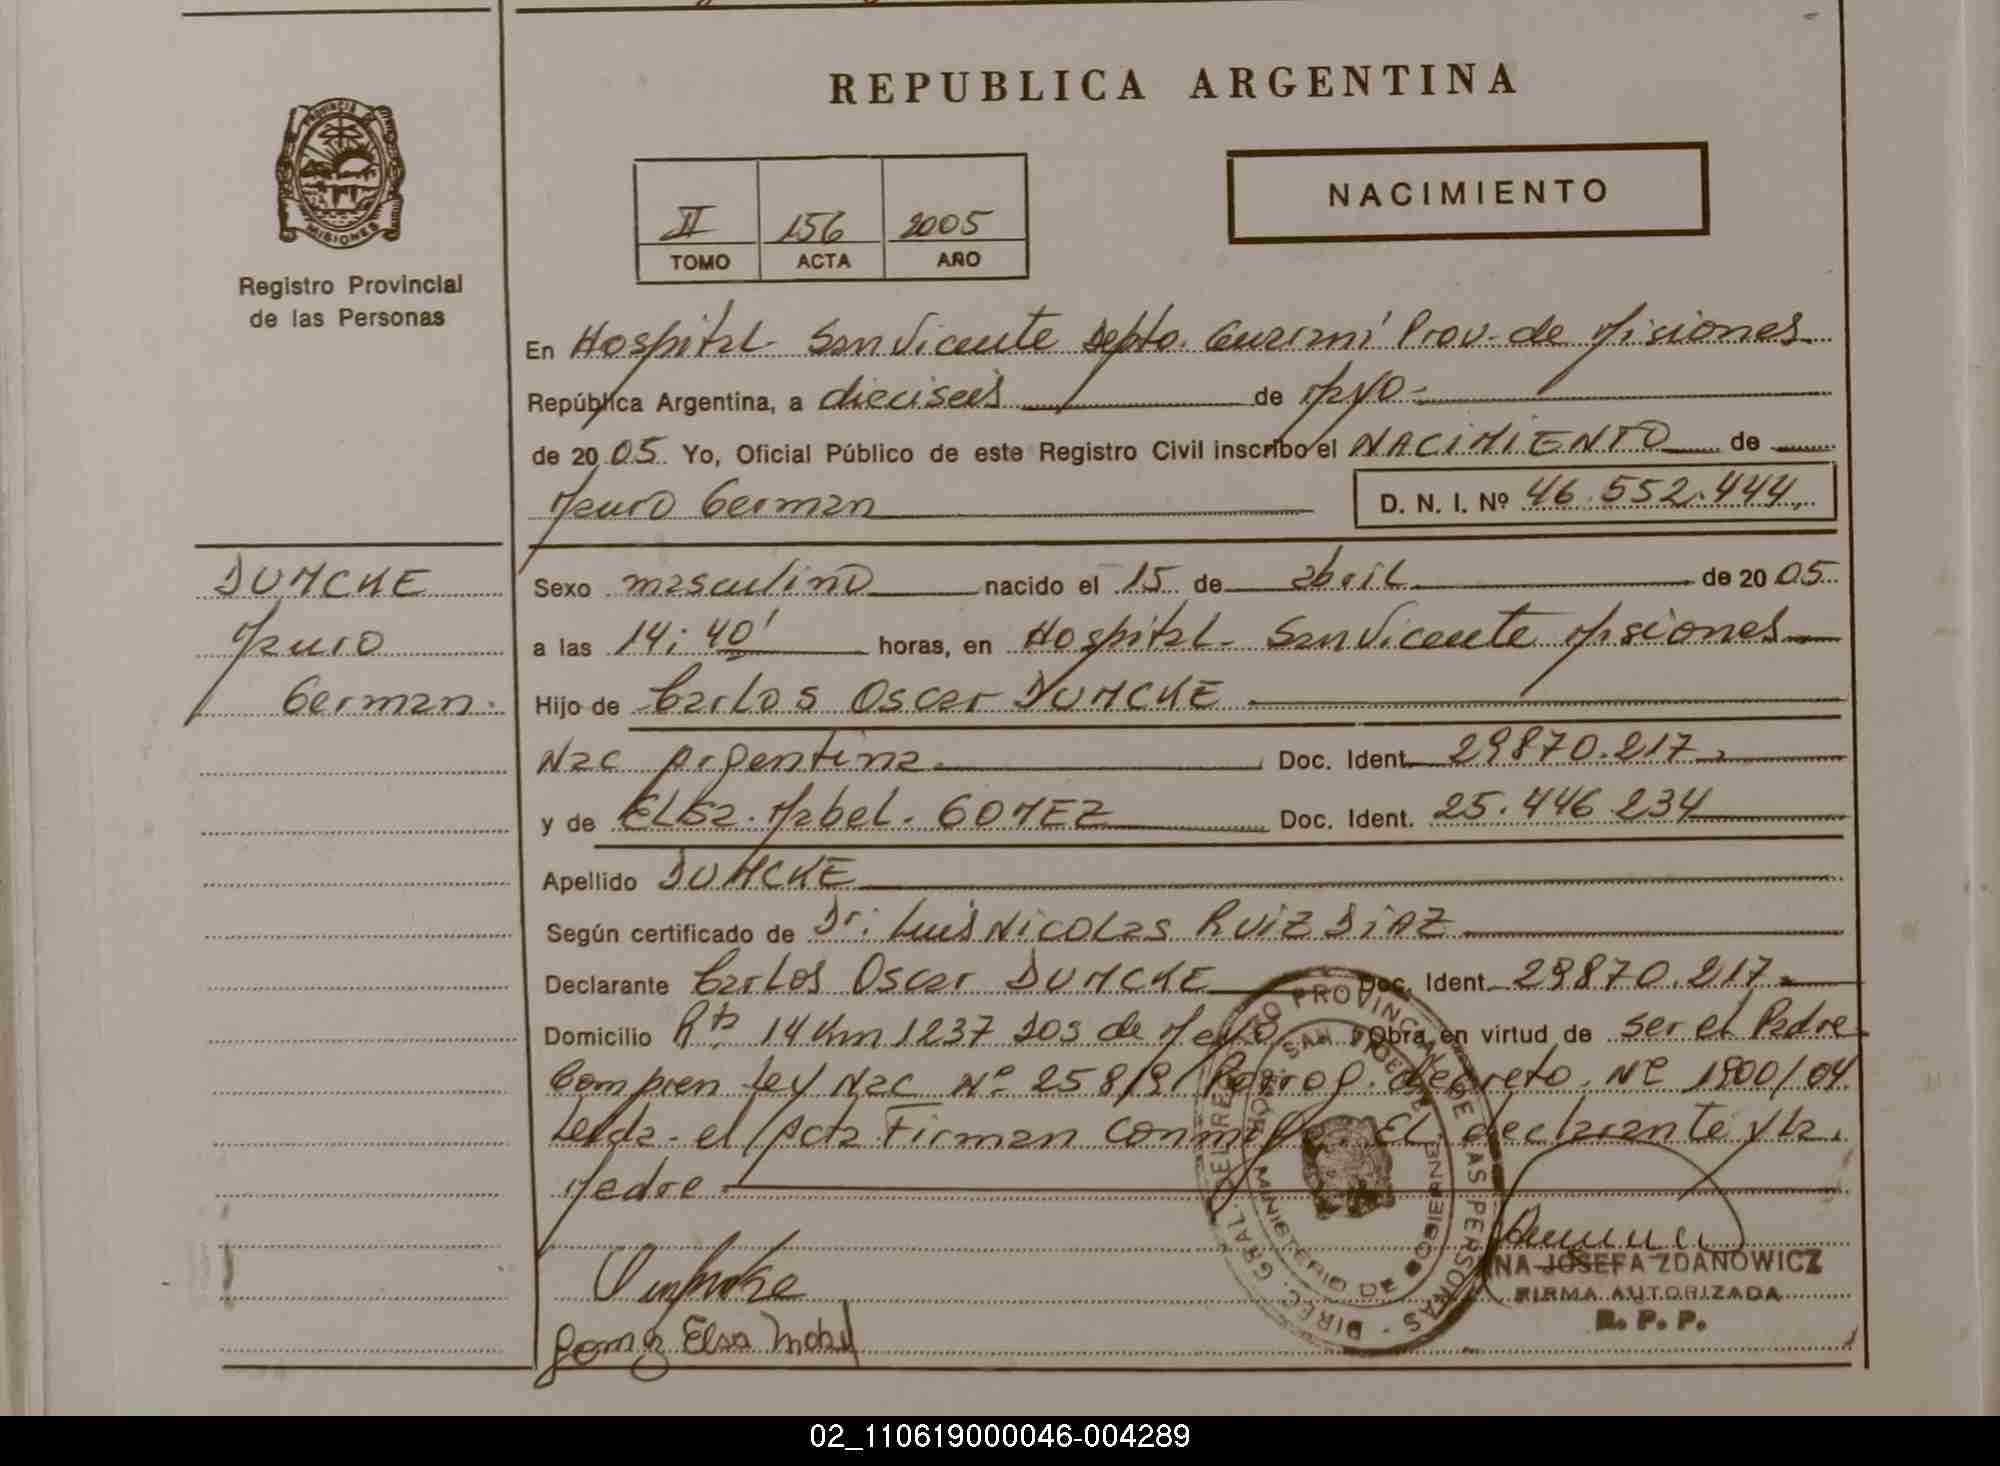 REPUBLICA ARGENTINA
PROVINCIA DE
MISIONES
Registro Provincial
de las Personas
II 156 2005
TOMO ACTA AÑO
NACIMIENTO
En Hospital San Vicente Depto. Guaraní Prov. de Misiones
República Argentina, a dieciseis de Mayo
de 2005 Yo, Oficial Público de este Registro Civil inscribo el NACIMIENTO de
Mauro German D. N. I. Nº 46.552.444
DUMCKE
Mauro
German.
Sexo masculino nacido el 15 de abril de 2005
a las 14:40' horas, en Hospital San Vicente Misiones
Hijo de Carlos Oscar DUMCKE
Nac Argentina. Doc. Ident. 29870.217
y de Elsa Mabel. GOMEZ Doc. Ident. 25.446.234
Apellido DUMCKE
Según certificado de Dr. Luis Nicolas RUIZ DIAZ
Declarante Carlos Oscar DUMCKE Doc. Ident. 29870.217
Domicilio Rta 14 Km 1237 Dos de Mayo Obra en virtud de ser el Padre
Compren Ley Nac Nº 25819 Prorrog. decreto. Nº 1900/04
Leida el Acta Firman conmigo. El declarante y la
Madre
DIREC. GRAL. DEL REGISTRO PROVINCIAL DE LAS PERSONAS
SAN VICENTE
MINISTERIO DE GOBIERNO
Gomez Elsa Mabel
NA JOSEFA ZDANOWICZ
FIRMA AUTORIZADA
R. P. P.
02_110619000046-004289